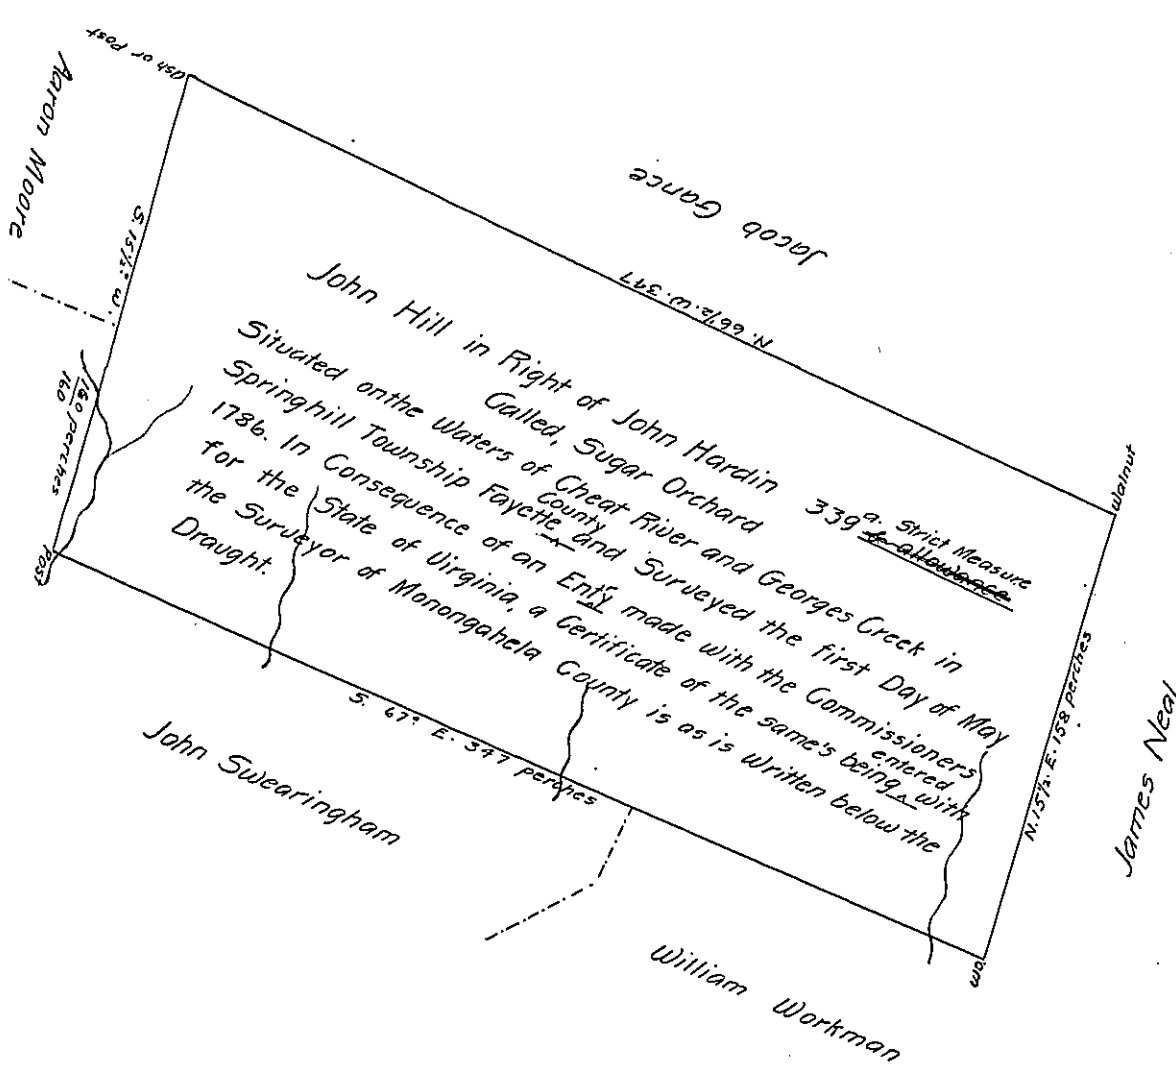 Ash or Post
Aaron Moore
S. 15½° W.
160 perches
160
Post
Jacob Gance
N. 66½. W. 347
John Hill in Right of John Hardin
Called, Sugar Orchard
339 a. Strict Measure
& allowance
Situated on the Waters of Cheat River and Georges Creek in
Springhill Township Fayette County and Surveyed the first Day of May
1786. In Consequence of an Entry made with the Commissioners
for the State of Virginia, a Certificate of the same's being entered with
the Surveyor of Monongahela County is as is Written below the
Draught.
Walnut
N. 15½. E. 158 perches
James Neal
S. 67° E. 347 perches
John Swearingham
WO.
William Workman